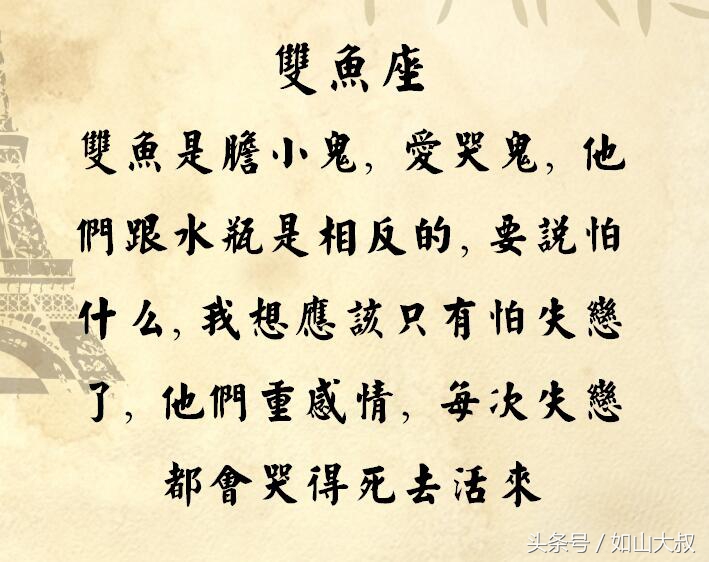 PARIS
雙魚座
雙魚是膽小鬼, 愛哭鬼, 他
們跟水瓶是相反的, 要説怕
什么, 我想應該只有怕失戀
了, 他們重感情, 每次失戀
都會哭得死去活來
头条号 / 如山大叔